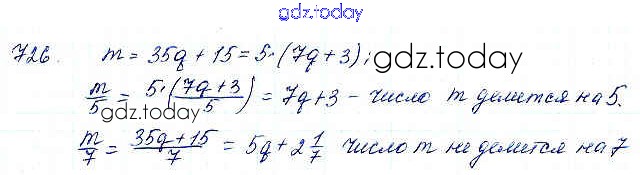 gdz.today
726. m = 35q + 15 = 5·(7q + 3);
gdz.today
m/5 = 5·(7q+3)/5 = 7q+3 – число m делится на 5.
gdz.today
m/7 = 35q+15/7 = 5q + 2 1/7 число m не делится на 7